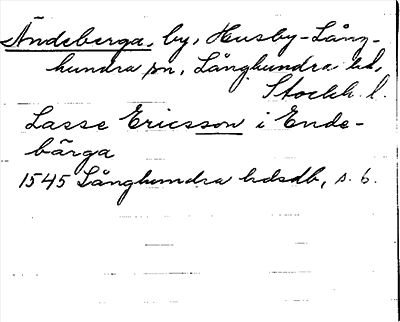 Ändeberga, by, Husby-Lång-
hundra sn, Långhundra hd,
Stockh. l.
Lasse Ericsson i Ende-
bärga
1545 Långhundra hdsdb, s. 6.